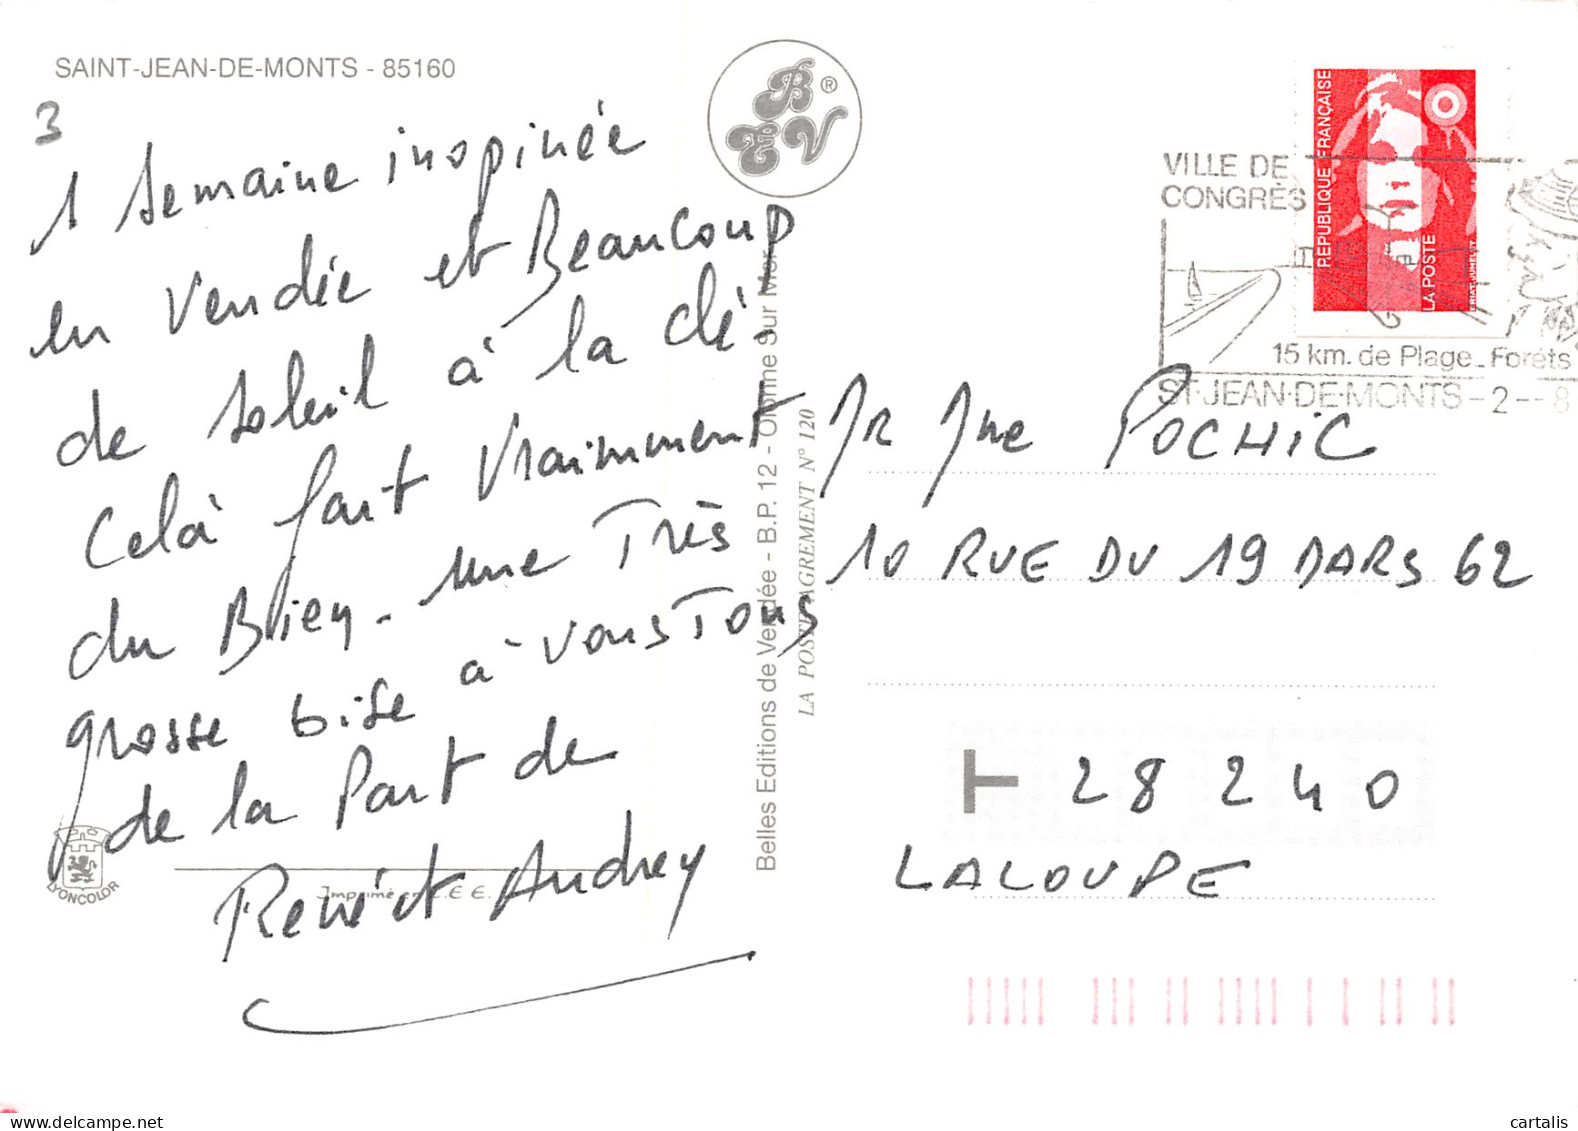 SAINT-JEAN-DE-MONTS - 85160
3
1 semaine inopinée
en Vendée et Beaucoup
de soleil à la clé.
Celà fait vraimment
du Bien. Une Très
grosse bise à vous Tous
de la Part de
René et Audrey
LYONCOLOR
Imprimé en C.E.E.
B ® E V
Belles Editions de Vendée - B.P. 12 - Olonne Sur Mer
LA POSTE AGREMENT N° 120
REPUBLIQUE FRANÇAISE
LA POSTE
VILLE DE
CONGRÈS
15 km. de Plage_Forêts
ST-JEAN-DE-MONTS -2--8
Mr Mme POCHIC
10 RUE DU 19 MARS 62
T 28 240
LALOUPE
cartalis